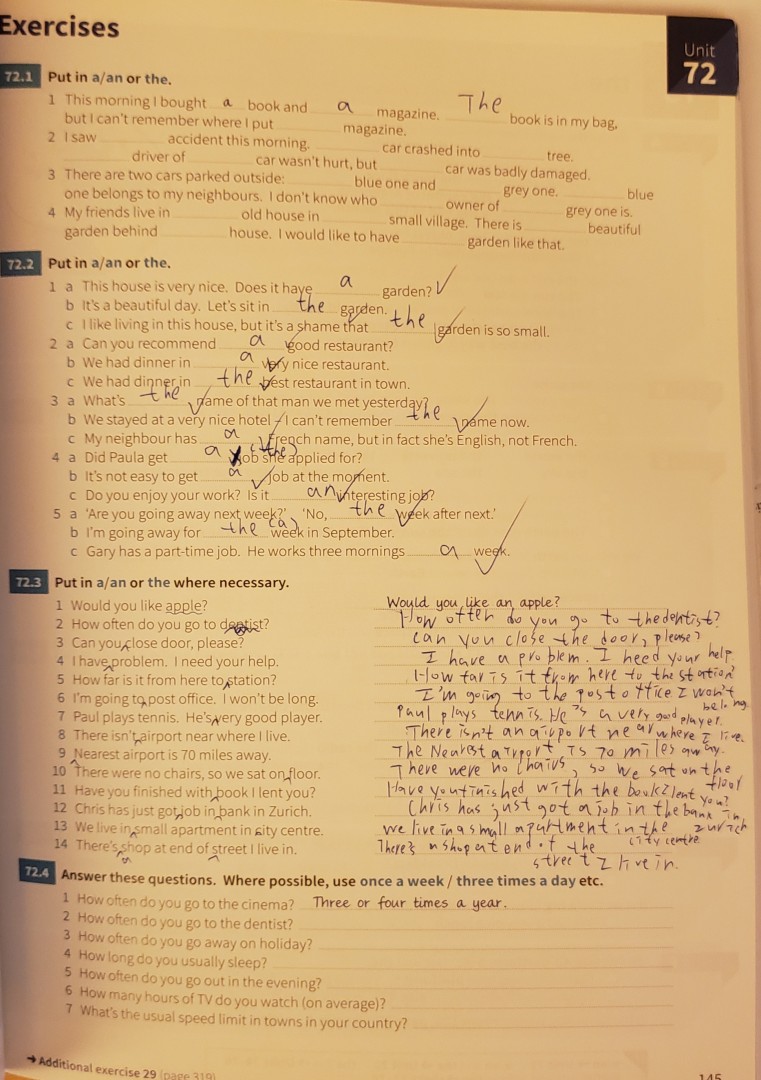 Exercises
Unit
72
72.1 Put in a/an or the.
1 This morning I bought a book and a magazine. The book is in my bag,
but I can't remember where I put magazine.
2 I saw accident this morning. car crashed into tree.
driver of car wasn't hurt, but car was badly damaged.
3 There are two cars parked outside: blue one and grey one. blue
one belongs to my neighbours. I don't know who owner of grey one is.
4 My friends live in old house in small village. There is beautiful
garden behind house. I would like to have garden like that.
72.2 Put in a/an or the.
1 a This house is very nice. Does it have a garden?
b It's a beautiful day. Let's sit in the garden.
c I like living in this house, but it's a shame that the garden is so small.
2 a Can you recommend a good restaurant?
b We had dinner in a very nice restaurant.
c We had dinner in the best restaurant in town.
3 a What's the name of that man we met yesterday?
b We stayed at a very nice hotel – I can't remember the name now.
c My neighbour has a French name, but in fact she's English, not French.
4 a Did Paula get a (the) job she applied for?
b It's not easy to get a job at the moment.
c Do you enjoy your work? Is it an interesting job?
5 a 'Are you going away next week?' 'No, the week after next.'
b I'm going away for the (a) week in September.
c Gary has a part-time job. He works three mornings a week.
72.3 Put in a/an or the where necessary.
1 Would you like apple? Would you like an apple?
2 How often do you go to dentist? How often do you go to thedentist?
3 Can you close door, please? can you close the door, please?
4 I have problem. I need your help. I have a problem. I need your help
5 How far is it from here to station? How far is it from here to the station?
6 I'm going to post office. I won't be long. I'm going to the post office I won't be long
7 Paul plays tennis. He's very good player. Paul plays tennis. He's a very good player.
8 There isn't airport near where I live. There isn't an airport near where I live.
9 Nearest airport is 70 miles away. The Nearest airport is 70 miles away.
10 There were no chairs, so we sat on floor. There were no chairs, so we sat on the floor
11 Have you finished with book I lent you? Have you finished with the book I lent you?
12 Chris has just got job in bank in Zurich. Chris has just got a job in the bank in zurich
13 We live in small apartment in city centre. we live in a small apartment in the city centre
14 There's shop at end of street I live in. There's a shop at end of the street I live in.
a
72.4 Answer these questions. Where possible, use once a week / three times a day etc.
1 How often do you go to the cinema? Three or four times a year.
2 How often do you go to the dentist?
3 How often do you go away on holiday?
4 How long do you usually sleep?
5 How often do you go out in the evening?
6 How many hours of TV do you watch (on average)?
7 What's the usual speed limit in towns in your country?
➜ Additional exercise 29 (page 319)
145